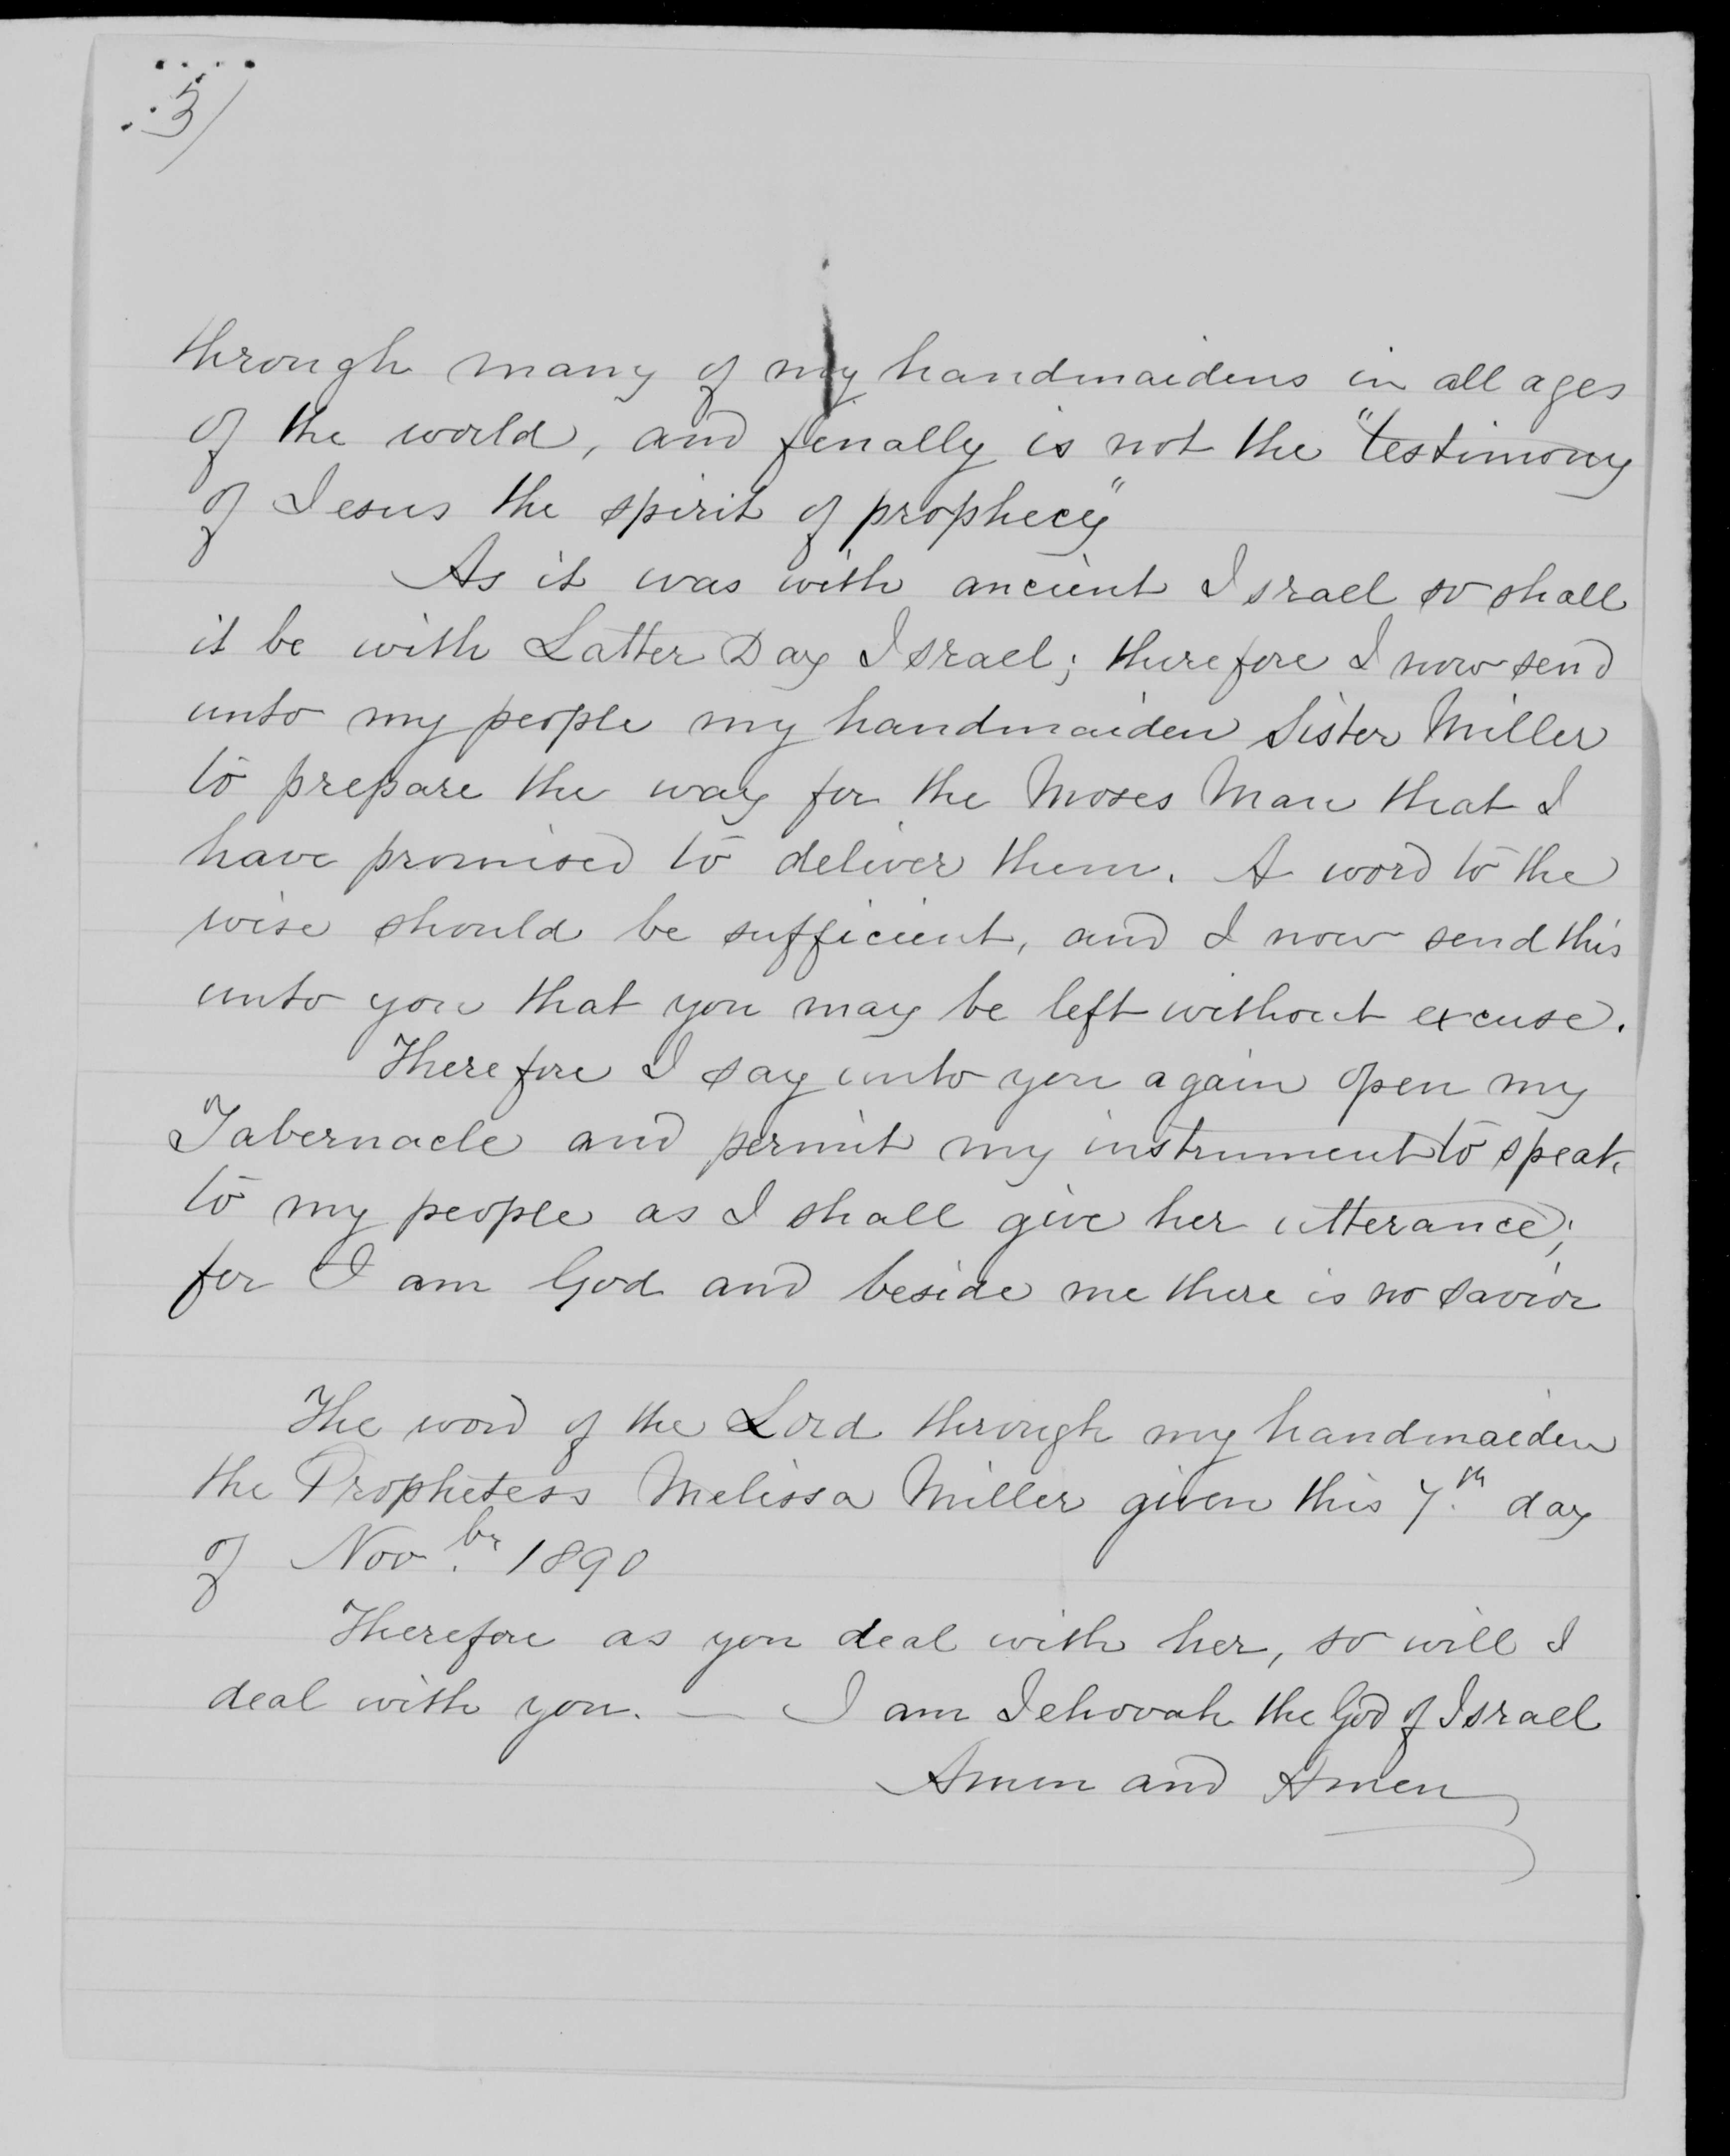 3)
through many of my handmaidens in all ages
of the world, and finally is not the "testimony
of Jesus the spirit of prophecy"
As it was with ancient Israel so shall
it be with Latter Day Israel; therefore I now send
unto my people my handmaiden Sister Miller
to prepare the way for the Moses Man that I
have promised to deliver them. A word to the
wise should be sufficient, and I now send this
unto you that you may be left without excuse.
Therefore I say unto you again open my
Tabernacle and permit my instrument to speak
to my people as I shall give her utterance;
for I am God and beside me there is no savior
The word of the Lord through my handmaiden
the Prophetess Melissa Miller given this 7.th day
of Nov.br 1890
Therefore as you deal with her, so will I
deal with you. — I am Jehovah the God of Israel
Amen and Amen